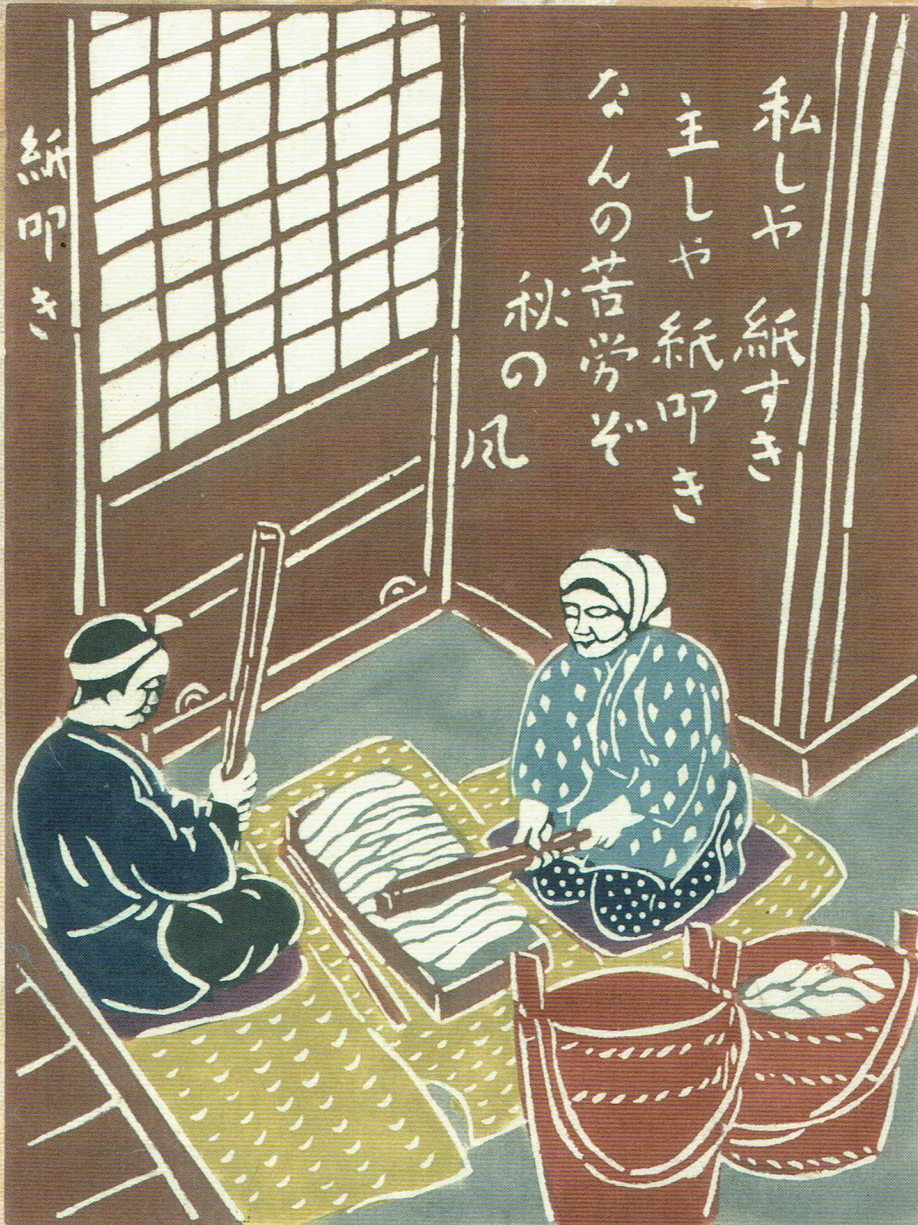 私しや 紙すき
主しや 紙叩き
なんの苦労ぞ
秋の
風
紙叩き